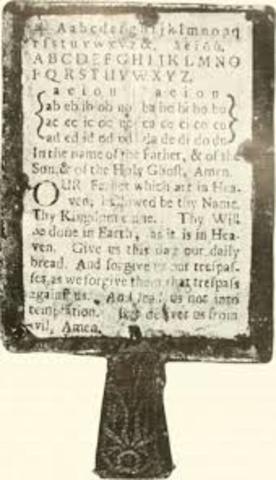 Aabcdefghijklmnopq
rſstuvwxyz&, aeiou,
ABCDEFGHIJKLMNO
PQRSTUVWXYZ,
a e i o u a e i o u
ab eb ib ob ub ba be bi bo bu
ac ec ic oc uc ca ce ci co cu
ad ed id od ud da de di do du
In the name of the Father, & of the
Son, & of the Holy Ghoſt, Amen.
OUR Father which art in Hea-
ven, hallowed be thy Name.
Thy Kingdom come. Thy Will
be done in Earth, as it is in Hea-
ven. Give us this day our daily
bread. And forgive us our treſpaſ-
ſes, as we forgive them that treſpaſs
againſt us. And lead us not into
temptation. But deliver us from
evil, Amen.